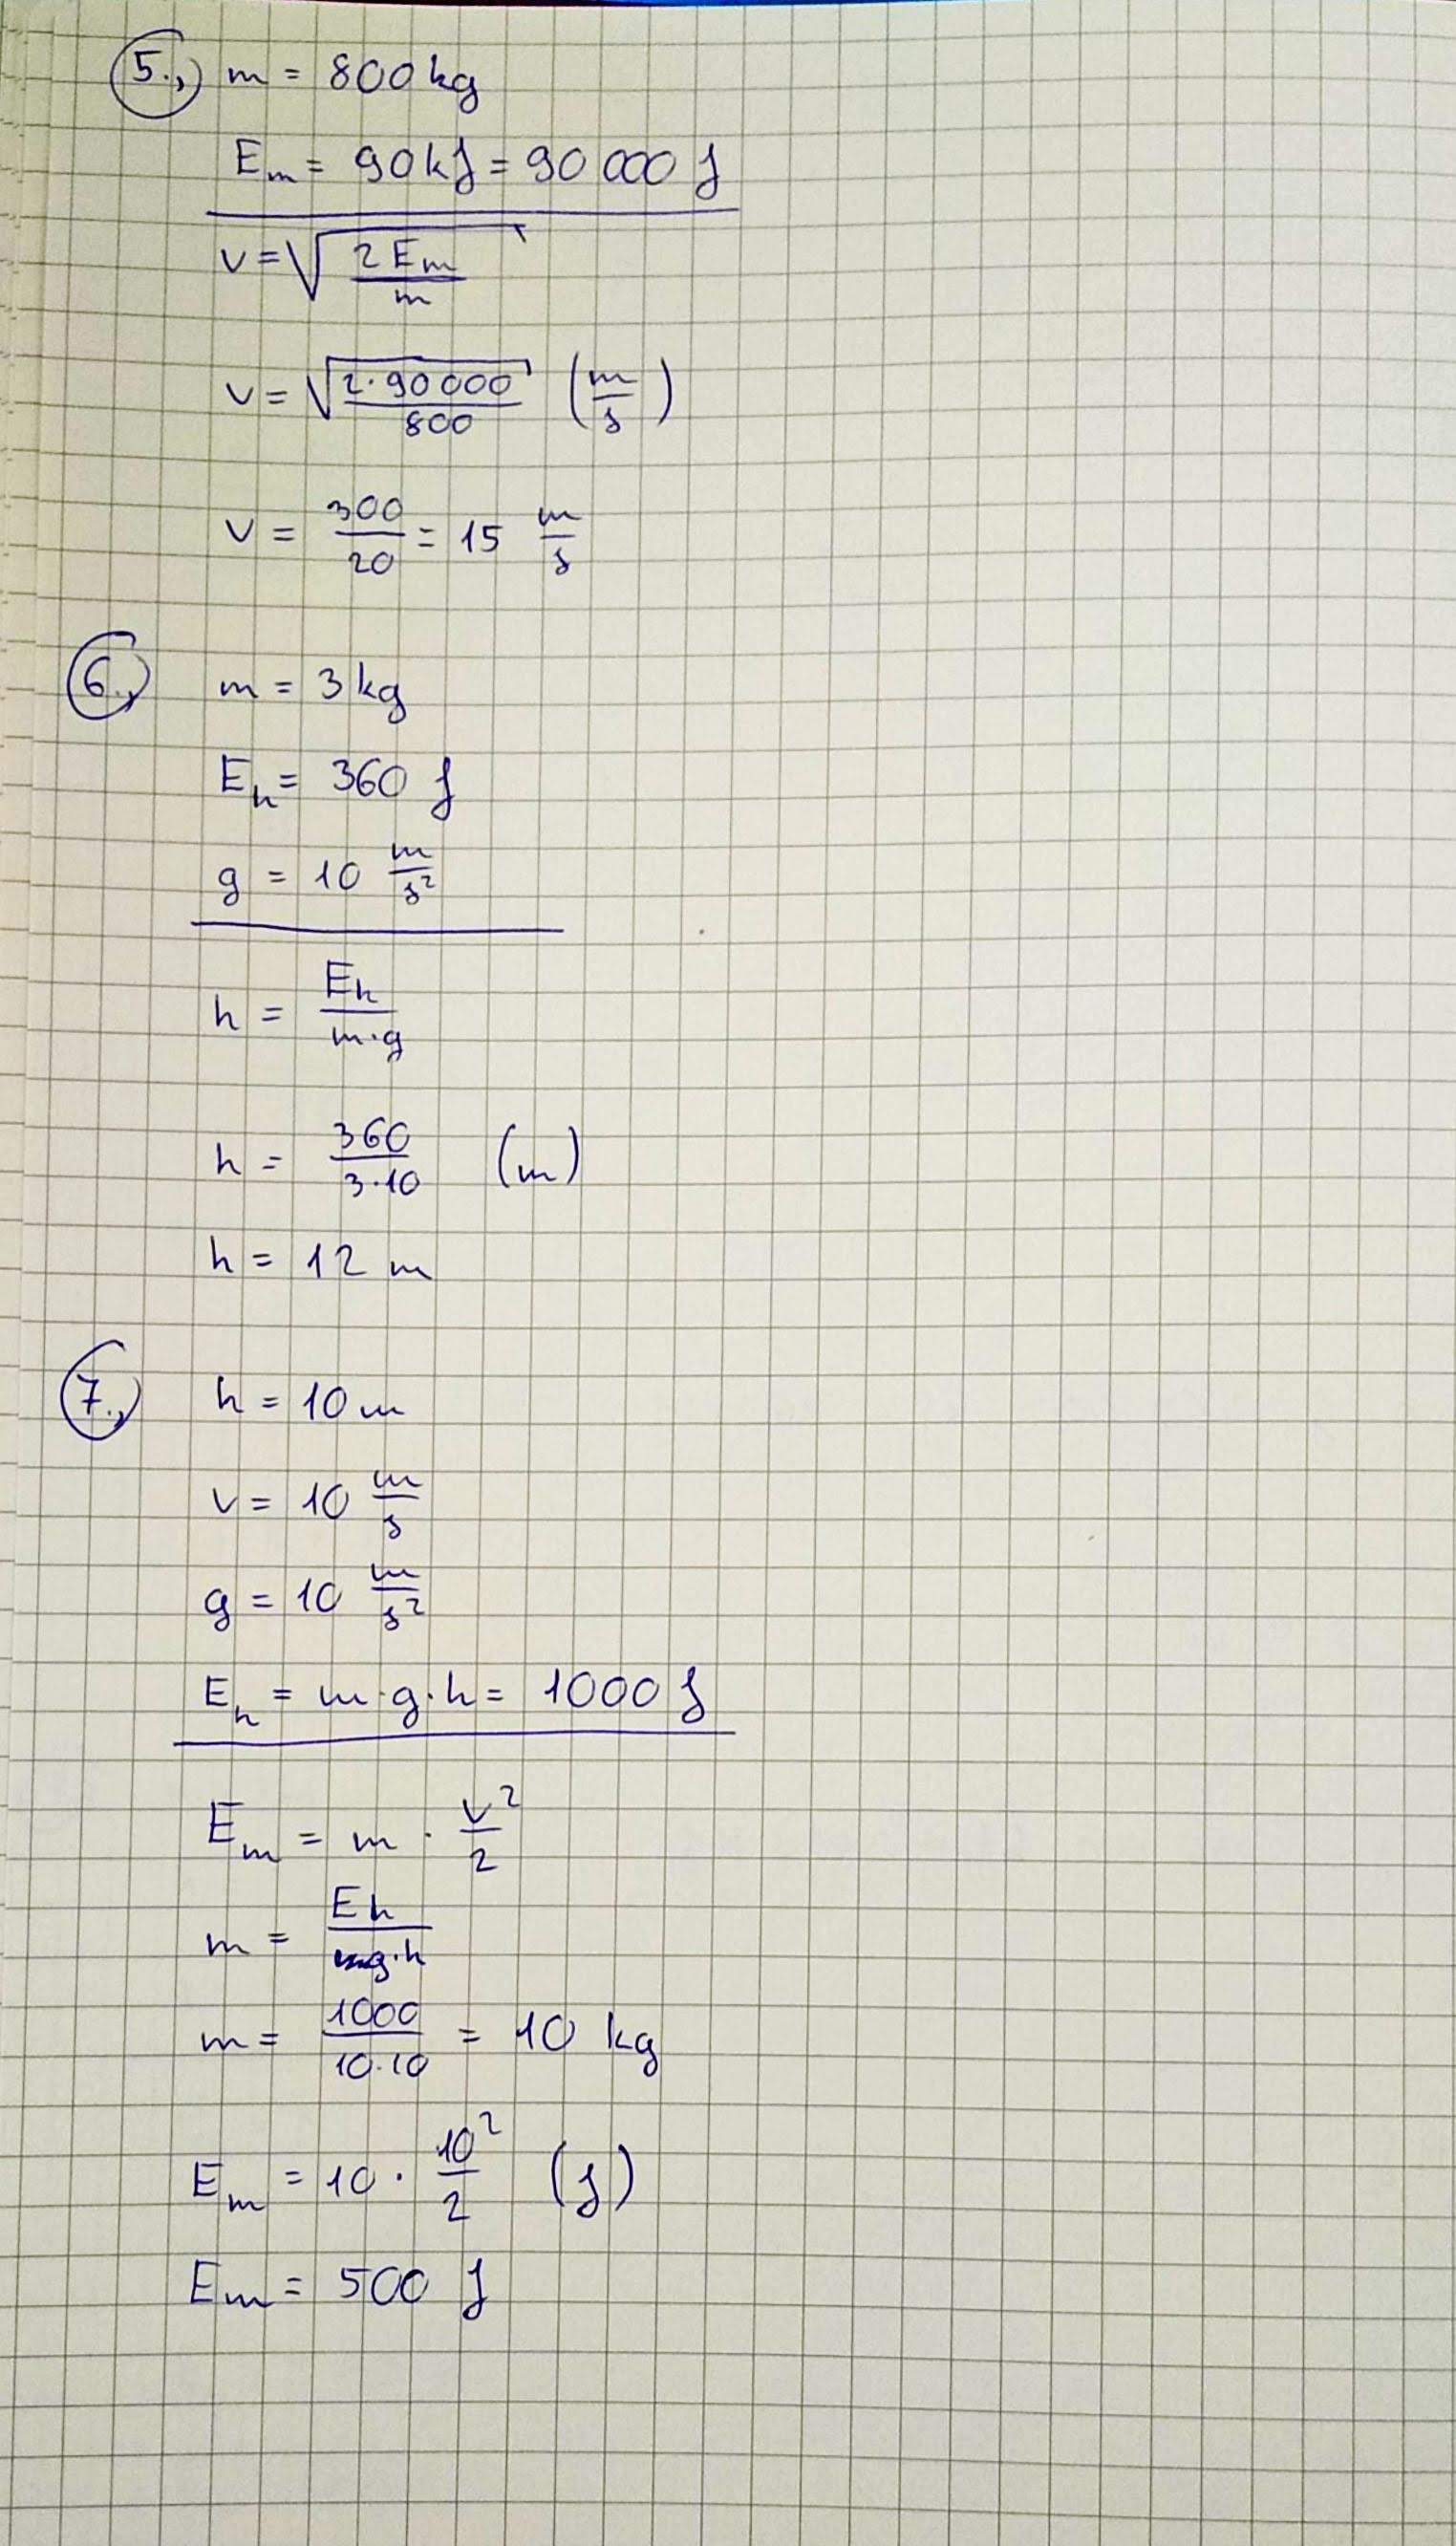 5., m = 800 kg
Em = 90 kJ = 90 000 J
v = √(2 Em / m)
v = √(2·90 000 / 800) (m/s)
v = 300/20 = 15 m/s
6., m = 3 kg
Eh = 360 J
g = 10 m/s²
h = Eh / m·g
h = 360 / 3·10 (m)
h = 12 m
7., h = 10 m
v = 10 m/s
g = 10 m/s²
Eh = m·g·h = 1000 J
Em = m · v²/2
m = Eh / g·h
m = 1000 / 10·10 = 10 kg
Em = 10 · 10²/2 (J)
Em = 500 J